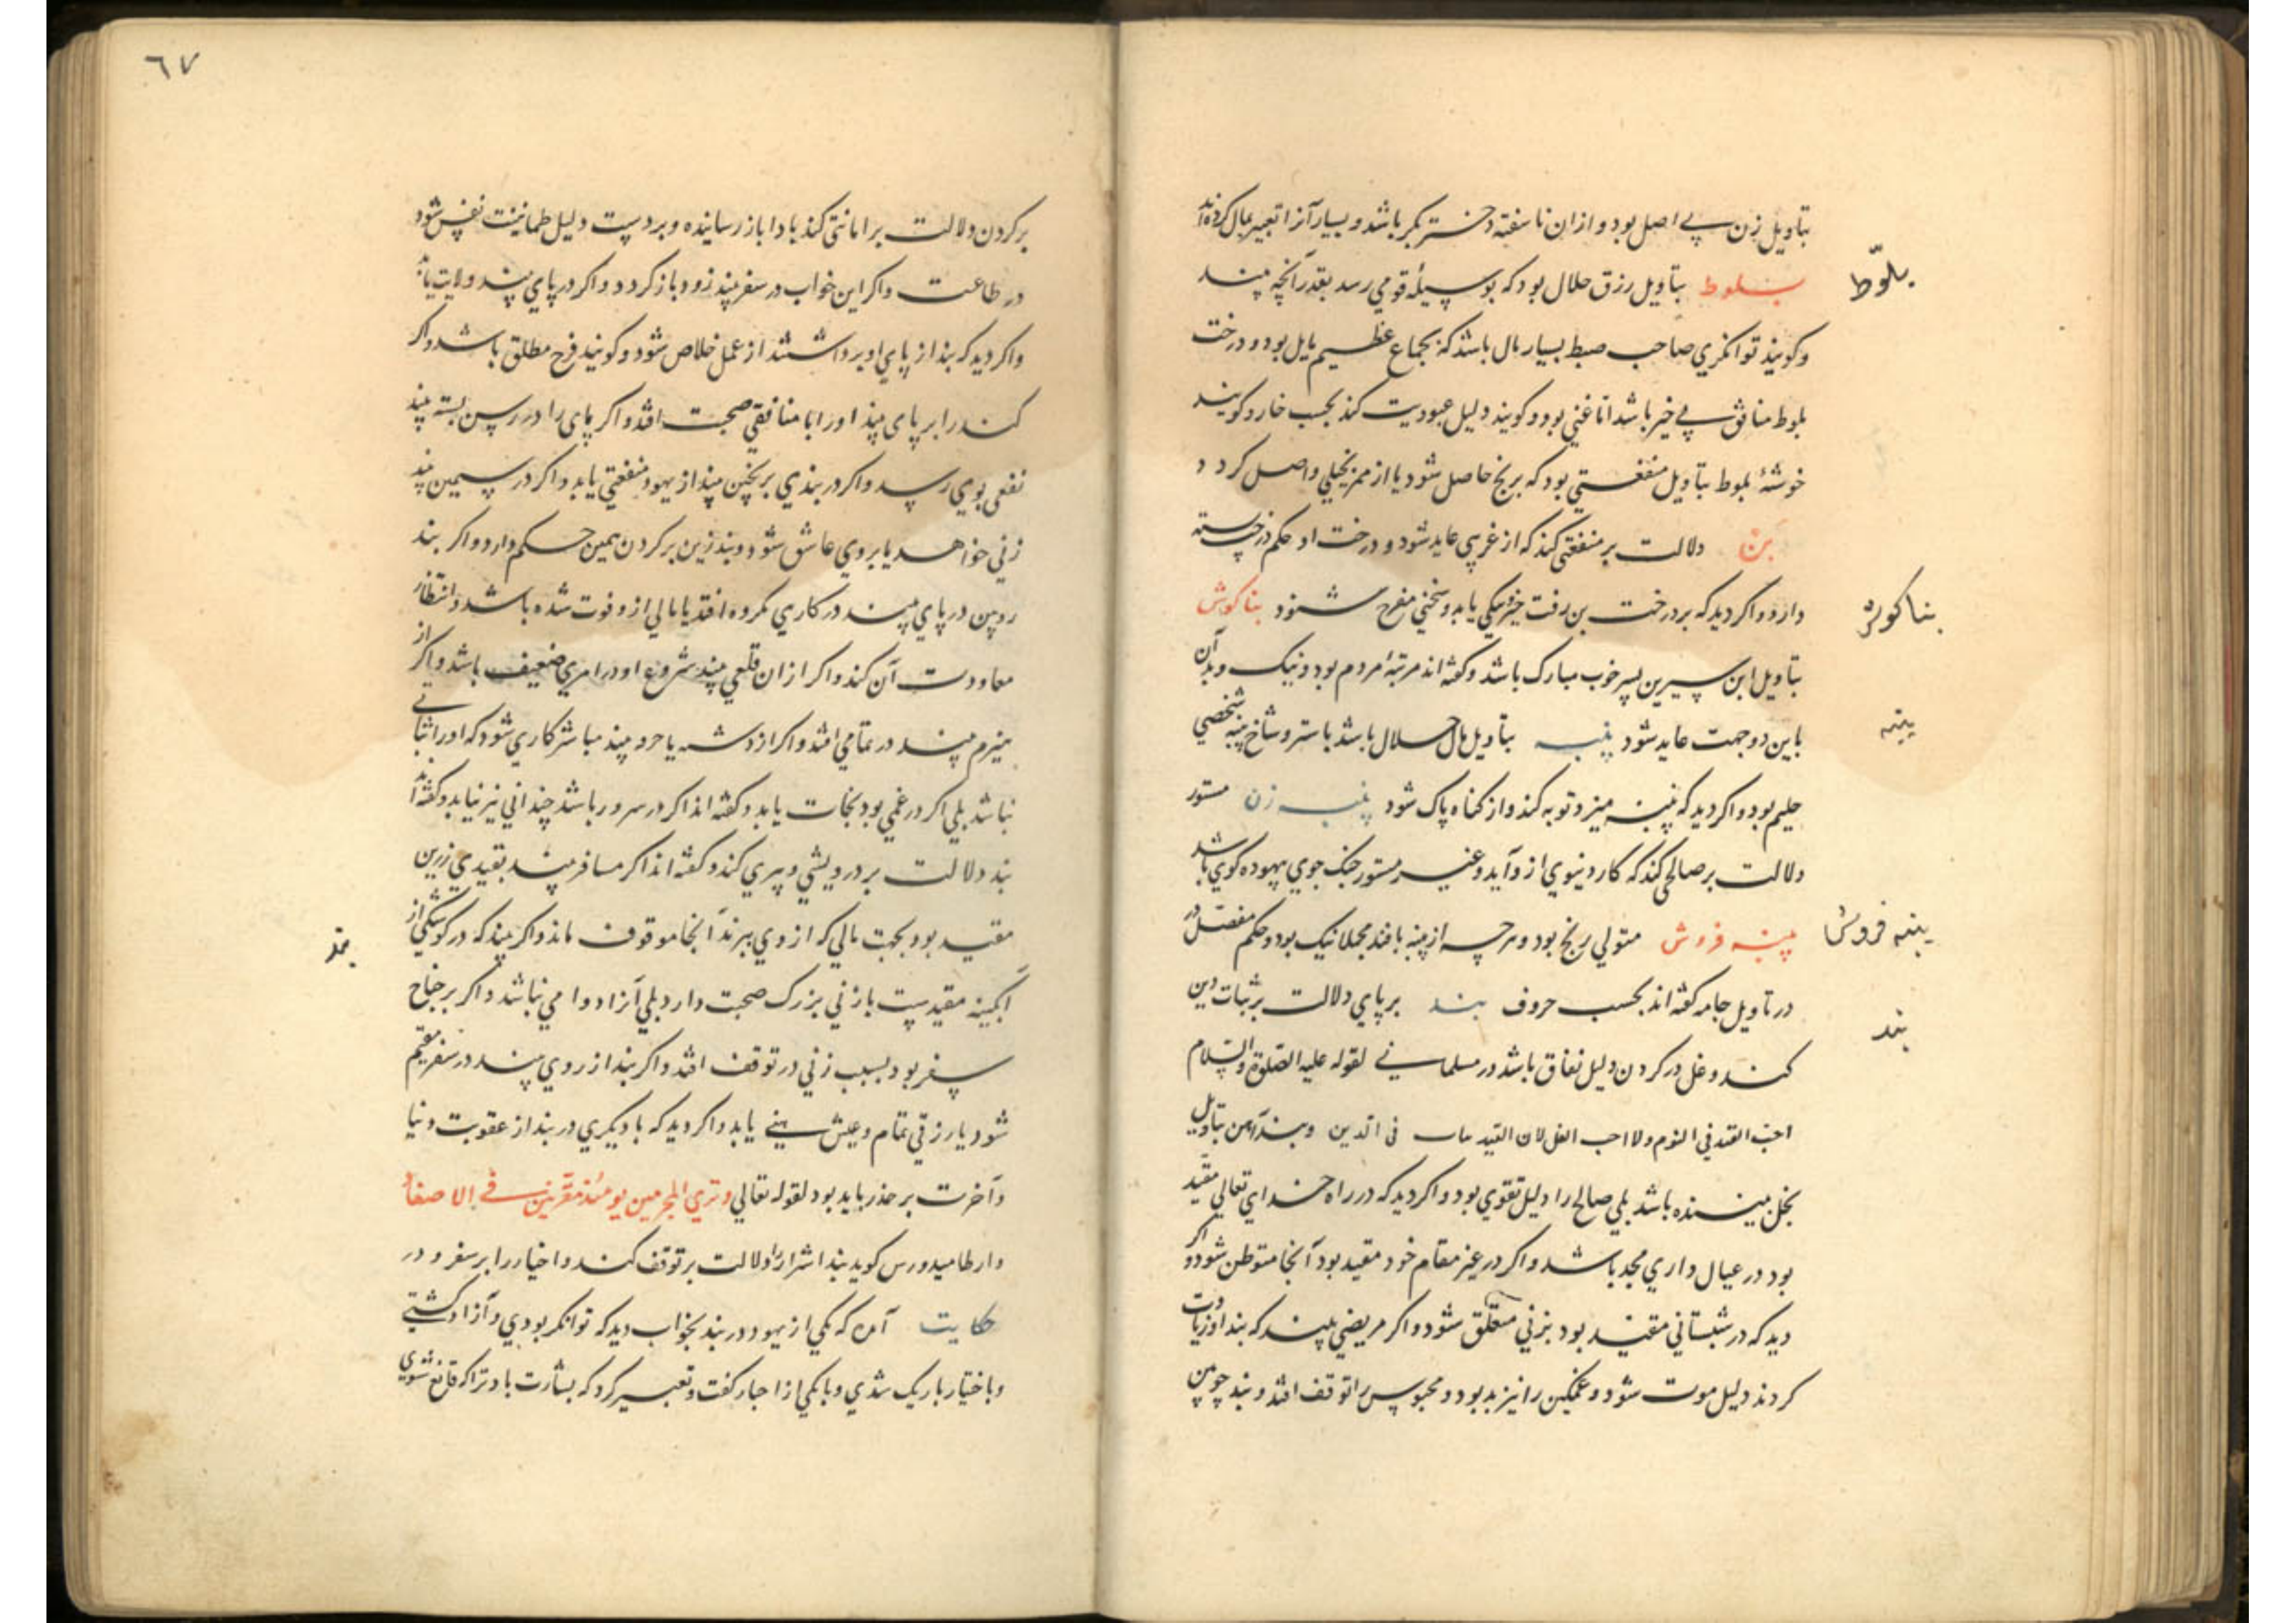 بتأويل زن بے اصل بود و ازان ناسفته دختر بكر باشد و بسيار آنرا تعبير بمال كرده‌اند
بلّوط
بلوط بتأويل رزق حلال بود كه بوسيلهٔ قومي رسد بقدر آنچه بيند
وكويند توانكري صاحب ضبط بسيار مال باشد كه بجماع عظيم مايل بود و درخت
بلوط منافق بے خير باشد اما غني بود وكويند دليل عبوديت كند بحسب خار وكويند
خوشهٔ بلوط بتأويل منفعتي بود كه برنج حاصل شود يا از ممر بخيلي واصل كردد
بن دلالت بر منفعتي كند كه از غريبي عايد شود و درخت او حكم درخت پسته
دارد و اكر ديد كه بر درخت بن رفت خير و نيكي يابد و سخني مفرح شنود بناكوش
بناكوش
بتأويل ابن سيرين پسر خوب مبارك باشد وكفته اند مرتبهٔ مردم بود و نيك و بد آن
باين دو جهت عايد شود پنبه بتأويل مال حلال باشد با ستر و شاخ پنبه شخصي
پنبه
حليم بود و اكر ديد كه پنبه ميزد توبه كند و از كناه پاك شود پنبه زن مستور
دلالت بر صالحي كند كه كار دنيوي ازو آيد و غير مستور جنك جوي بيهوده كوي باشد
پنبه فروش
پنبه فروش متولي رنج بود و هرچه از پنبه بافند مجملا نيك بود و حكم مفصل در
در تأويل جامه كفته اند بحسب حروف بند بر پاي دلالت بر ثبات دين
بند
كند و غل در كردن دليل نفاق باشد در مسلماني لقوله عليه الصلوة والسلام
احب القيد في النوم ولا احب الغل لان القيد ثبات في الدين و بند آهن بتأويل
بخل بيننده باشد بلي صالح را دليل تقوي بود و اكر ديد كه در راه خداي تعالي مقيد
بود در عيال داري مجد باشد و اكر در غير مقام خود مقيد بود آنجا متوطن شود و اكر
ديد كه در شبستاني مقيد بود بزني متعلق شود و اكر مريضي بيند كه بند او زيادت
كردند دليل موت شود و غمكين را نيز بد بود و محبوس را توقف افتد و بند چوبين
٦٧
بر كردن دلالت بر امانتي كند با دا باز رسانيده و بر دست دليل طمانينت نفس شود
در طاعت و اكر اين خواب در سفر بيند زود باز كردد و اكر در پاي بيند ولايت يابد
و اكر ديد كه بند از پاي او برداشتند از عمل خلاص شود وكويند فرح مطلق باشد و اكر
كند را بر پاي بيند او را با منافقي صحبت افتد و اكر پاي را در رسن بسته بيند
نفعي بوي رسد و اكر در بندي برنجين بيند از يهود منفعتي يابد و اكر در سيمين بيند
زني خواهد يا بروي عاشق شود و بند زرين بر كردن همين حكم دارد و اكر بند
رويين در پاي بيند در كاري مكروه افتد يا مالي ازو فوت شده باشد و انتظار
معاودت آن كند و اكر از ان قلعي بيند شروع او در امري ضعيف باشد و اكر از
هيزم بيند در نمامي افتد و اكر از دشبه يا خرد بيند مباشر كاري شود كه او را ثباتي
نباشد بلي اكر در غمي بود نجات يابد وكفته اند اكر در سرور باشد چنداني نيز نيايد وكفته اند
بند دلالت بر درويشي و پيري كند وكفته اند اكر مسافر بيند بقيدي زرين
مقيد بود بجهت مالي كه از وي ببرند آنجا موقوف ماند و اكر بيند كه در كوشكي از
آبكينه مقيدست با زني بزرك صحبت دارد بلي آنرا دوامي نباشد و اكر بر جناح
سفر بود بسبب زني در توقف افتد و اكر بند از روي بيند در سفر مقيم
شود يا رزقي تمام و عيش هنيئ يابد و اكر ديد كه با ديكري در بند از عقوبت دنيا
و آخرت بر حذر بايد بود لقوله تعالي وتري المجرمين يومئذ مقرنين في الاصفاد
و ارطاميدورس كويد بند اشرار را دلالت بر توقف كند و اخيار را بر سفر و در
حكايت آمده كه يكي از يهود در بند بخواب ديد كه توانكر بودي و آزاد كشتي
و باختيار باريك شدي و با يكي از احبار كفت و تعبير كرد كه بشارت باد ترا كه قانع شوي